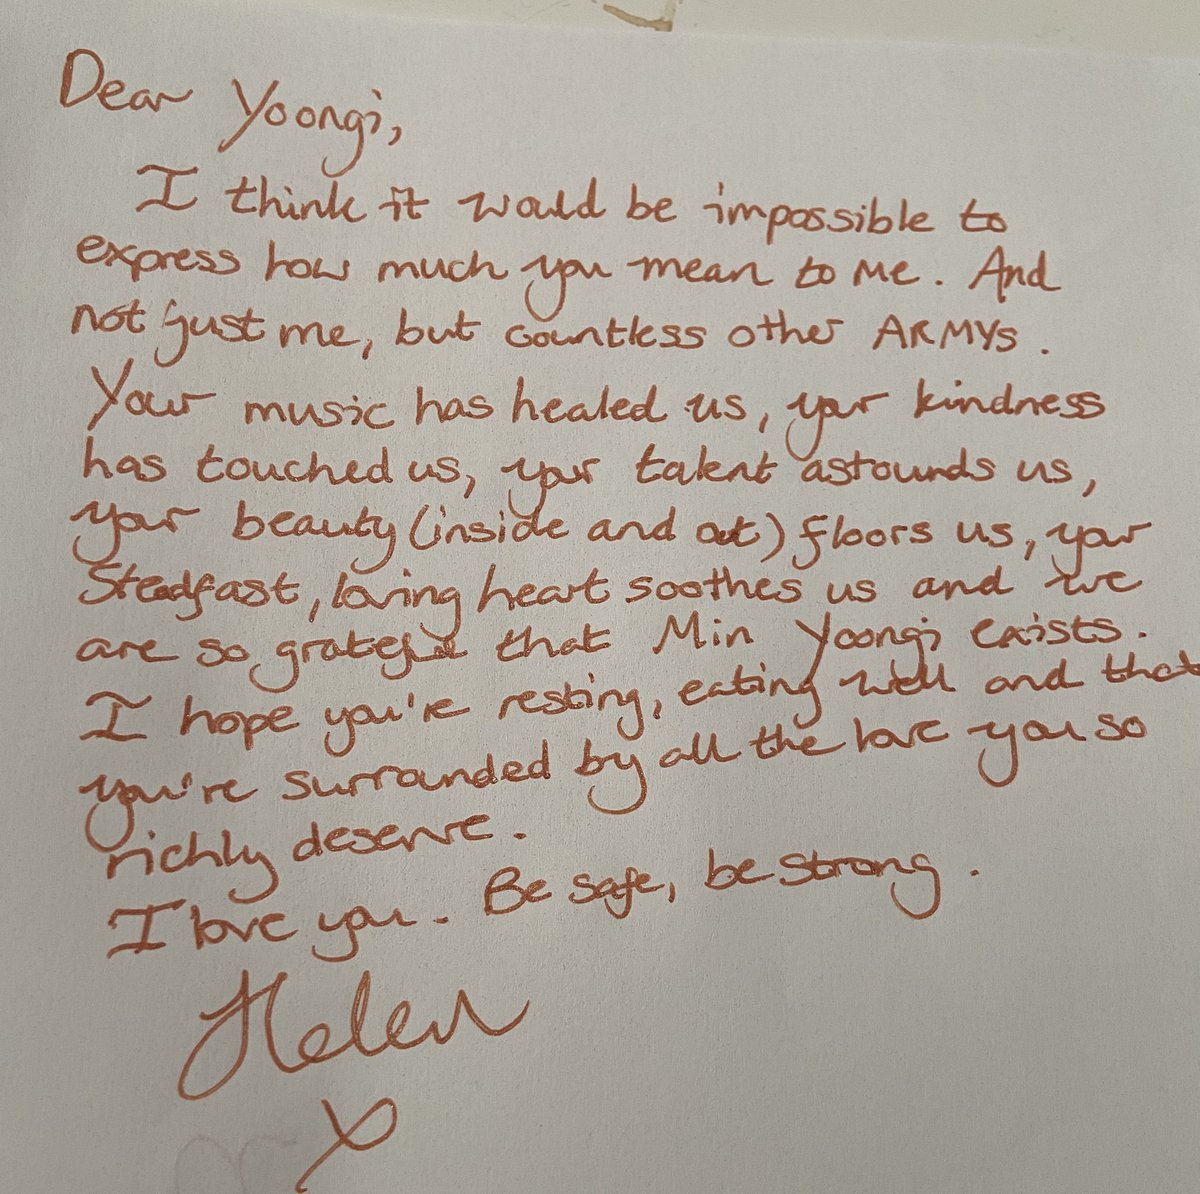 Dear Yoongi,
I think it would be impossible to
express how much you mean to me. And
not just me, but countless other ARMYs.
Your music has healed us, your kindness
has touched us, your talent astounds us,
your beauty (inside and out) floors us, your
steadfast, loving heart soothes us and we
are so grateful that Min Yoongi exists.
I hope you're resting, eating well and that
you're surrounded by all the love you so
richly deserve.
I love you. Be safe, be strong.
Helen
x